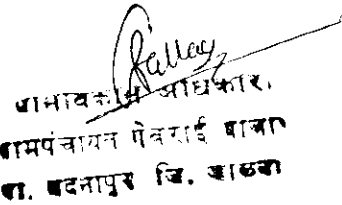 ग्रामविकास अधिकारी
ग्रामपंचायत गेवराई बाजार
ता. बदनापुर जि. जालना